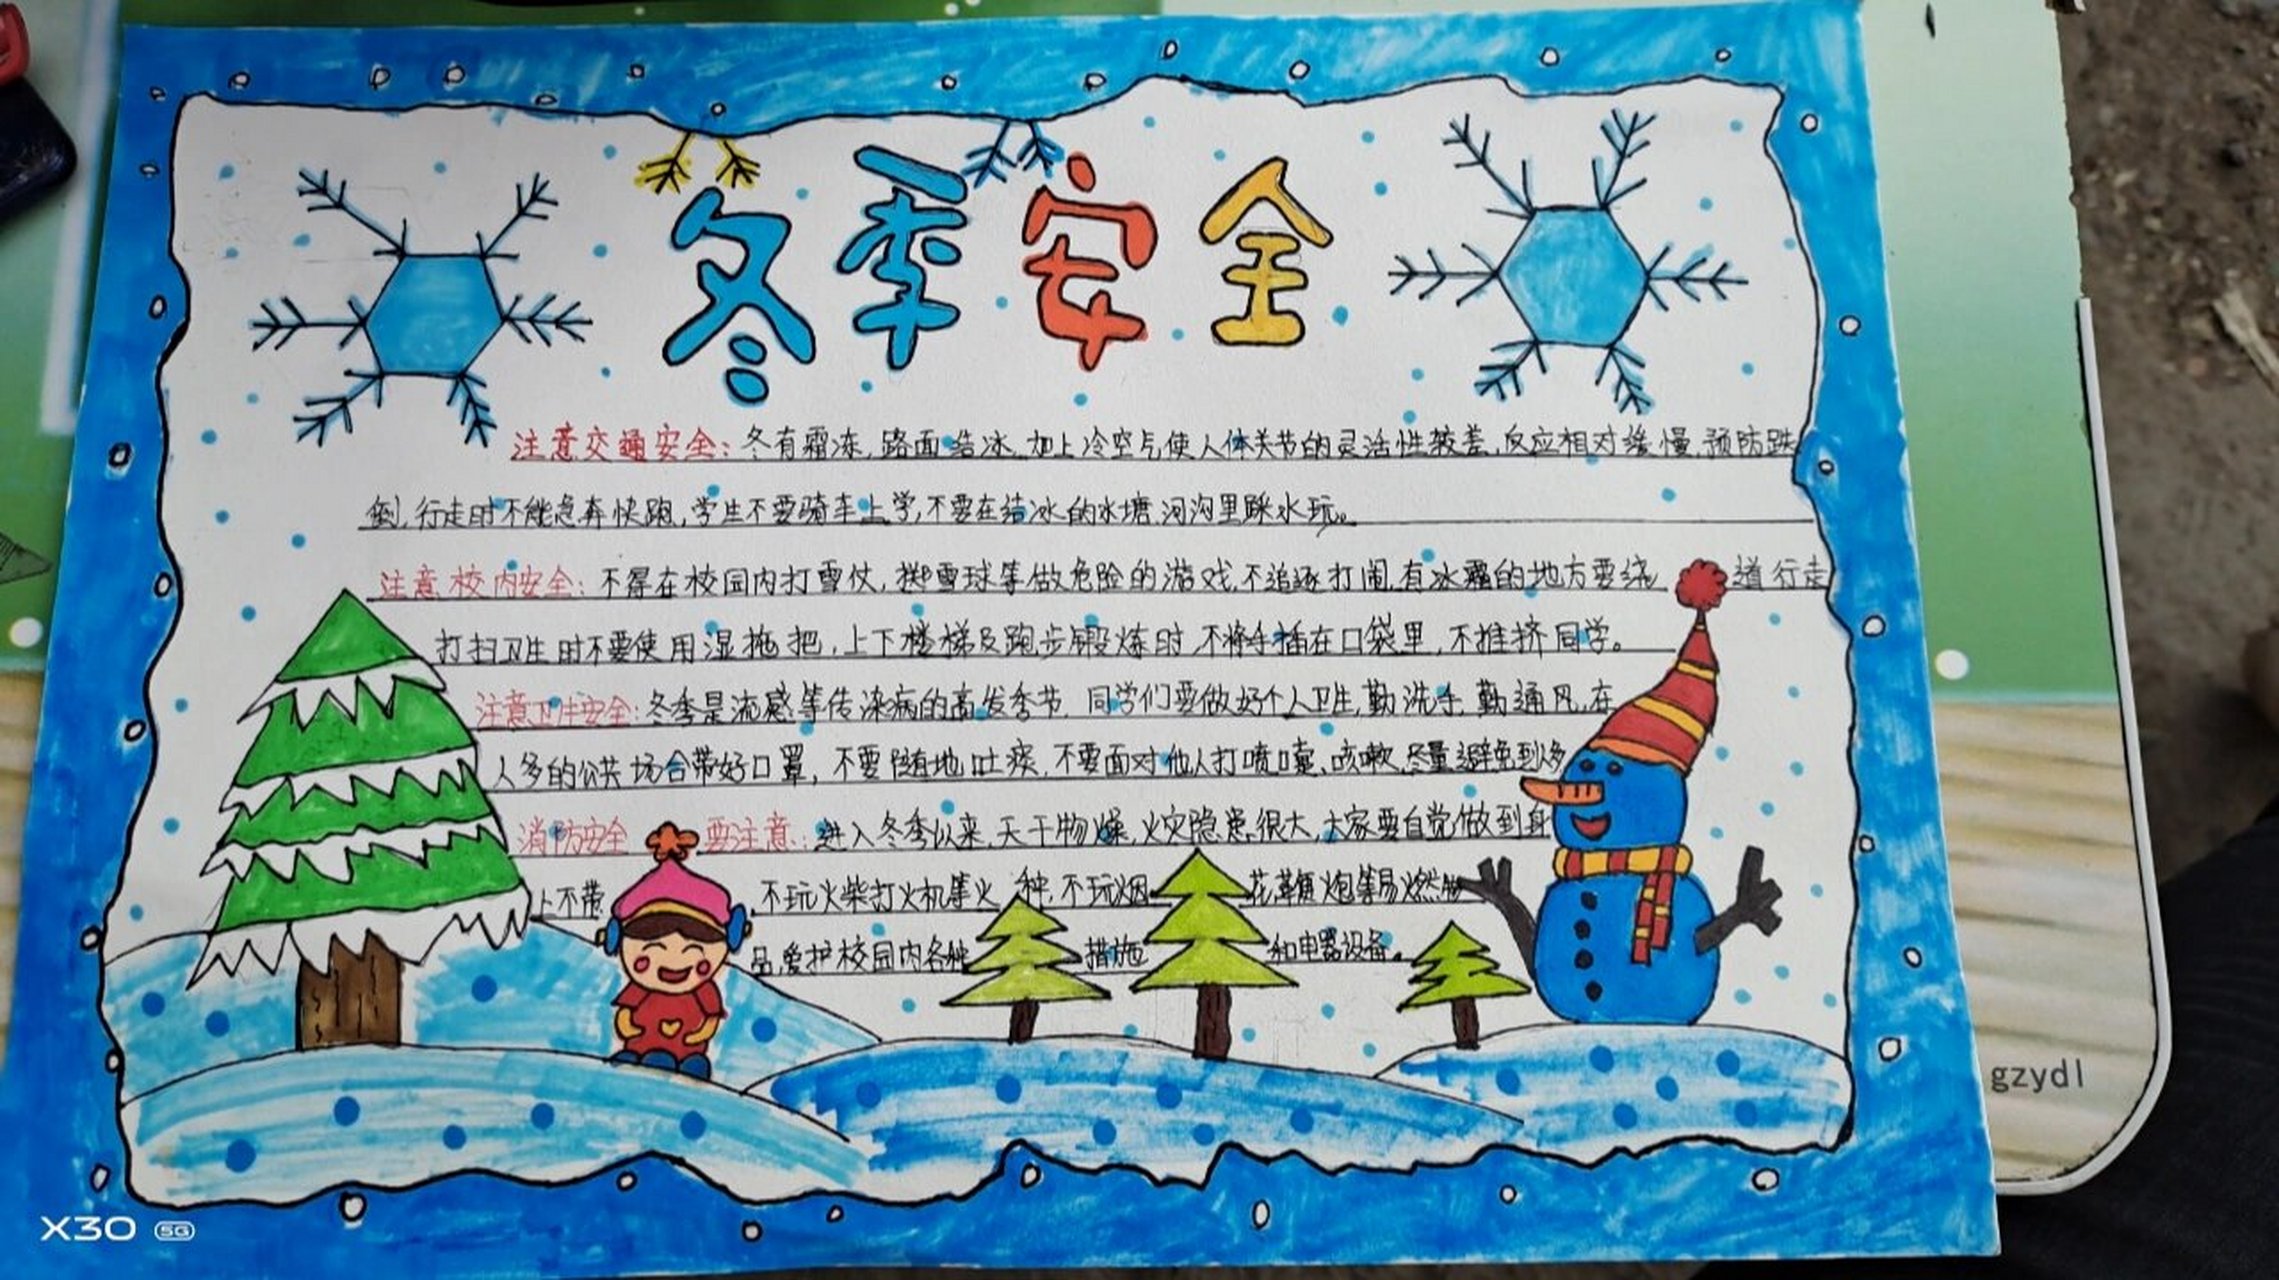 冬季安全
注意交通安全：冬有霜冻,路面结冰,加上冷空气使人体关节的灵活性较差,反应相对缓慢,预防跌
倒,行走时不能急奔快跑,学生不要骑车上学,不要在结冰的水塘.河沟里踩水玩。
注意校内安全：不得在校园内打雪仗,掷雪球等做危险的游戏,不追逐打闹,有冰霜的地方要绕道行走
打扫卫生时不要使用湿拖把,上下楼梯及跑步锻炼时,不将手插在口袋里,不推挤同学。
注意卫生安全:冬季是流感等传染病的高发季节.同学们要做好个人卫生,勤洗手,勤通风,在
人多的公共场合带好口罩,不要随地吐痰.不要面对他人打喷嚏、咳嗽,尽量避免到多
消防安全要注意：进入冬季以来,天干物燥,火灾隐患很大,大家要自觉做到身
上不带 不玩火柴打火机等火种,不玩烟花鞭炮等易燃物
品,爱护校园内各种措施和电器设备。
X30 5G
gzydl